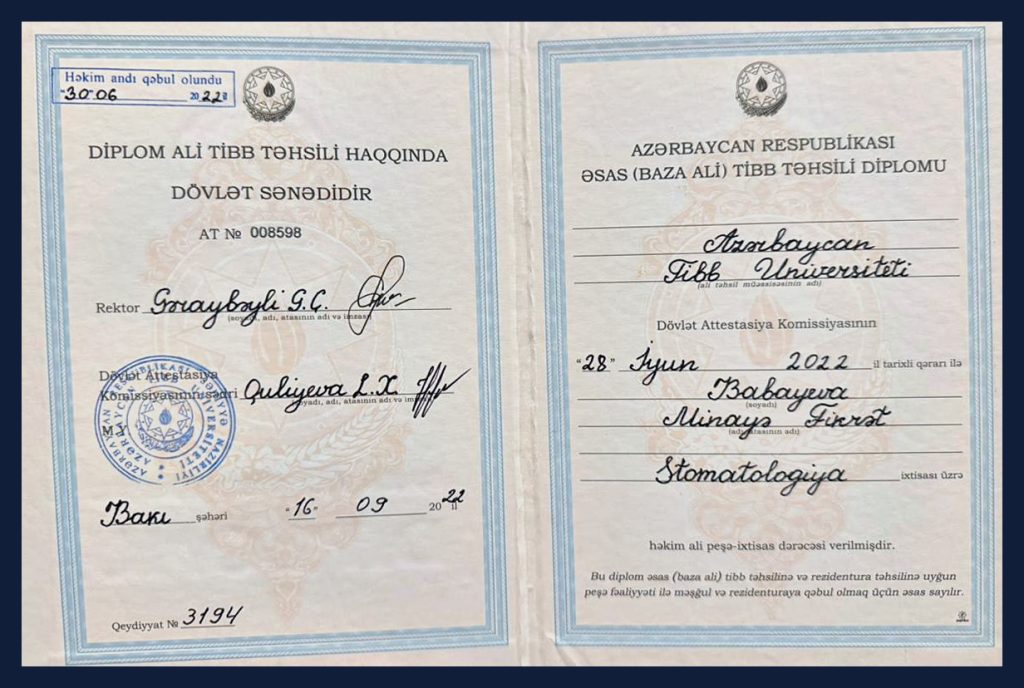 Həkim andı qəbul olundu
"30" 06 2022 il
DİPLOM ALİ TİBB TƏHSİLİ HAQQINDA
DÖVLƏT SƏNƏDİDİR
AT № 008598
Rektor Gəraybəyli G.Ç.
(soyadı, adı, atasının adı və imzası)
Dövlət Attestasiya
Komissiyasının sədri Quliyeva L.X
(soyadı, adı, atasının adı və imzası)
M.Y.
AZƏRBAYCAN RESPUBLİKASI SƏHİYYƏ NAZİRLİYİ
AZƏRBAYCAN TİBB UNİVERSİTETİ
Bakı şəhəri "16" 09 2022 il
Qeydiyyat № 3194
AZƏRBAYCAN RESPUBLİKASI
ƏSAS (BAZA ALİ) TİBB TƏHSİLİ DİPLOMU
Azərbaycan
Tibb Universiteti
(ali təhsil müəssisəsinin adı)
Dövlət Attestasiya Komissiyasının
"28" İyun 2022 il tarixli qərarı ilə
Babayeva
(soyadı)
Minayə Fikrət
(adı, atasının adı)
Stomatologiya ixtisası üzrə
həkim ali peşə-ixtisas dərəcəsi verilmişdir.
Bu diplom əsas (baza ali) tibb təhsilinə və rezidentura təhsilinə uyğun
peşə fəaliyyəti ilə məşğul və rezidenturaya qəbul olmaq üçün əsas sayılır.